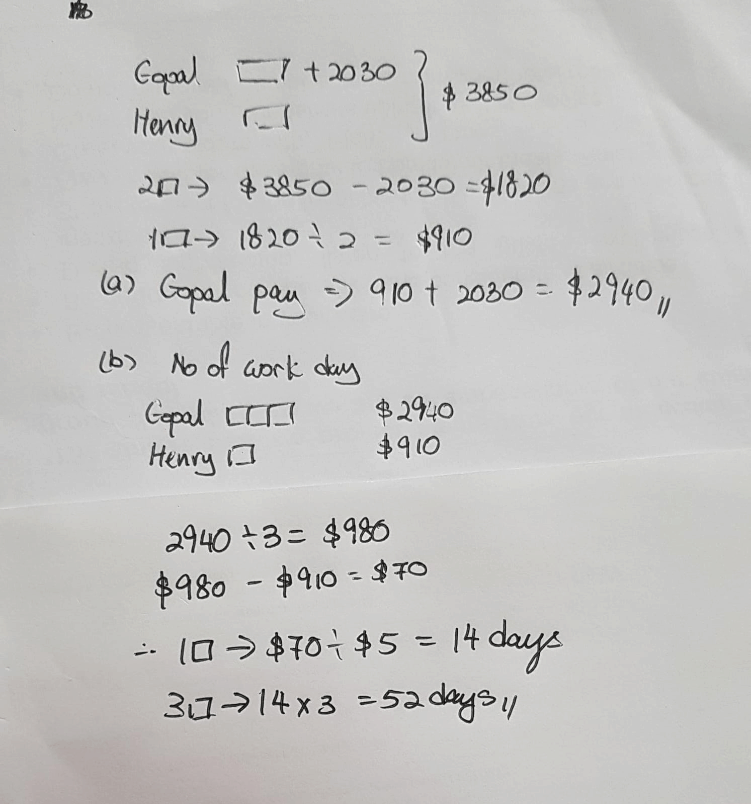 Gopal □ + 2030 } $3850
Henry □
2□ → $3850 - 2030 = $1820
1□ → 1820 ÷ 2 = $910
(a) Gopal pay ⇒ 910 + 2030 = $2940,,
(b) No of work day
Gopal □□□ $2940
Henry □ $910
2940 ÷ 3 = $980
$980 - $910 = $70
∴ 1□ → $70 ÷ $5 = 14 days
3□ → 14 x 3 = 52 days,,